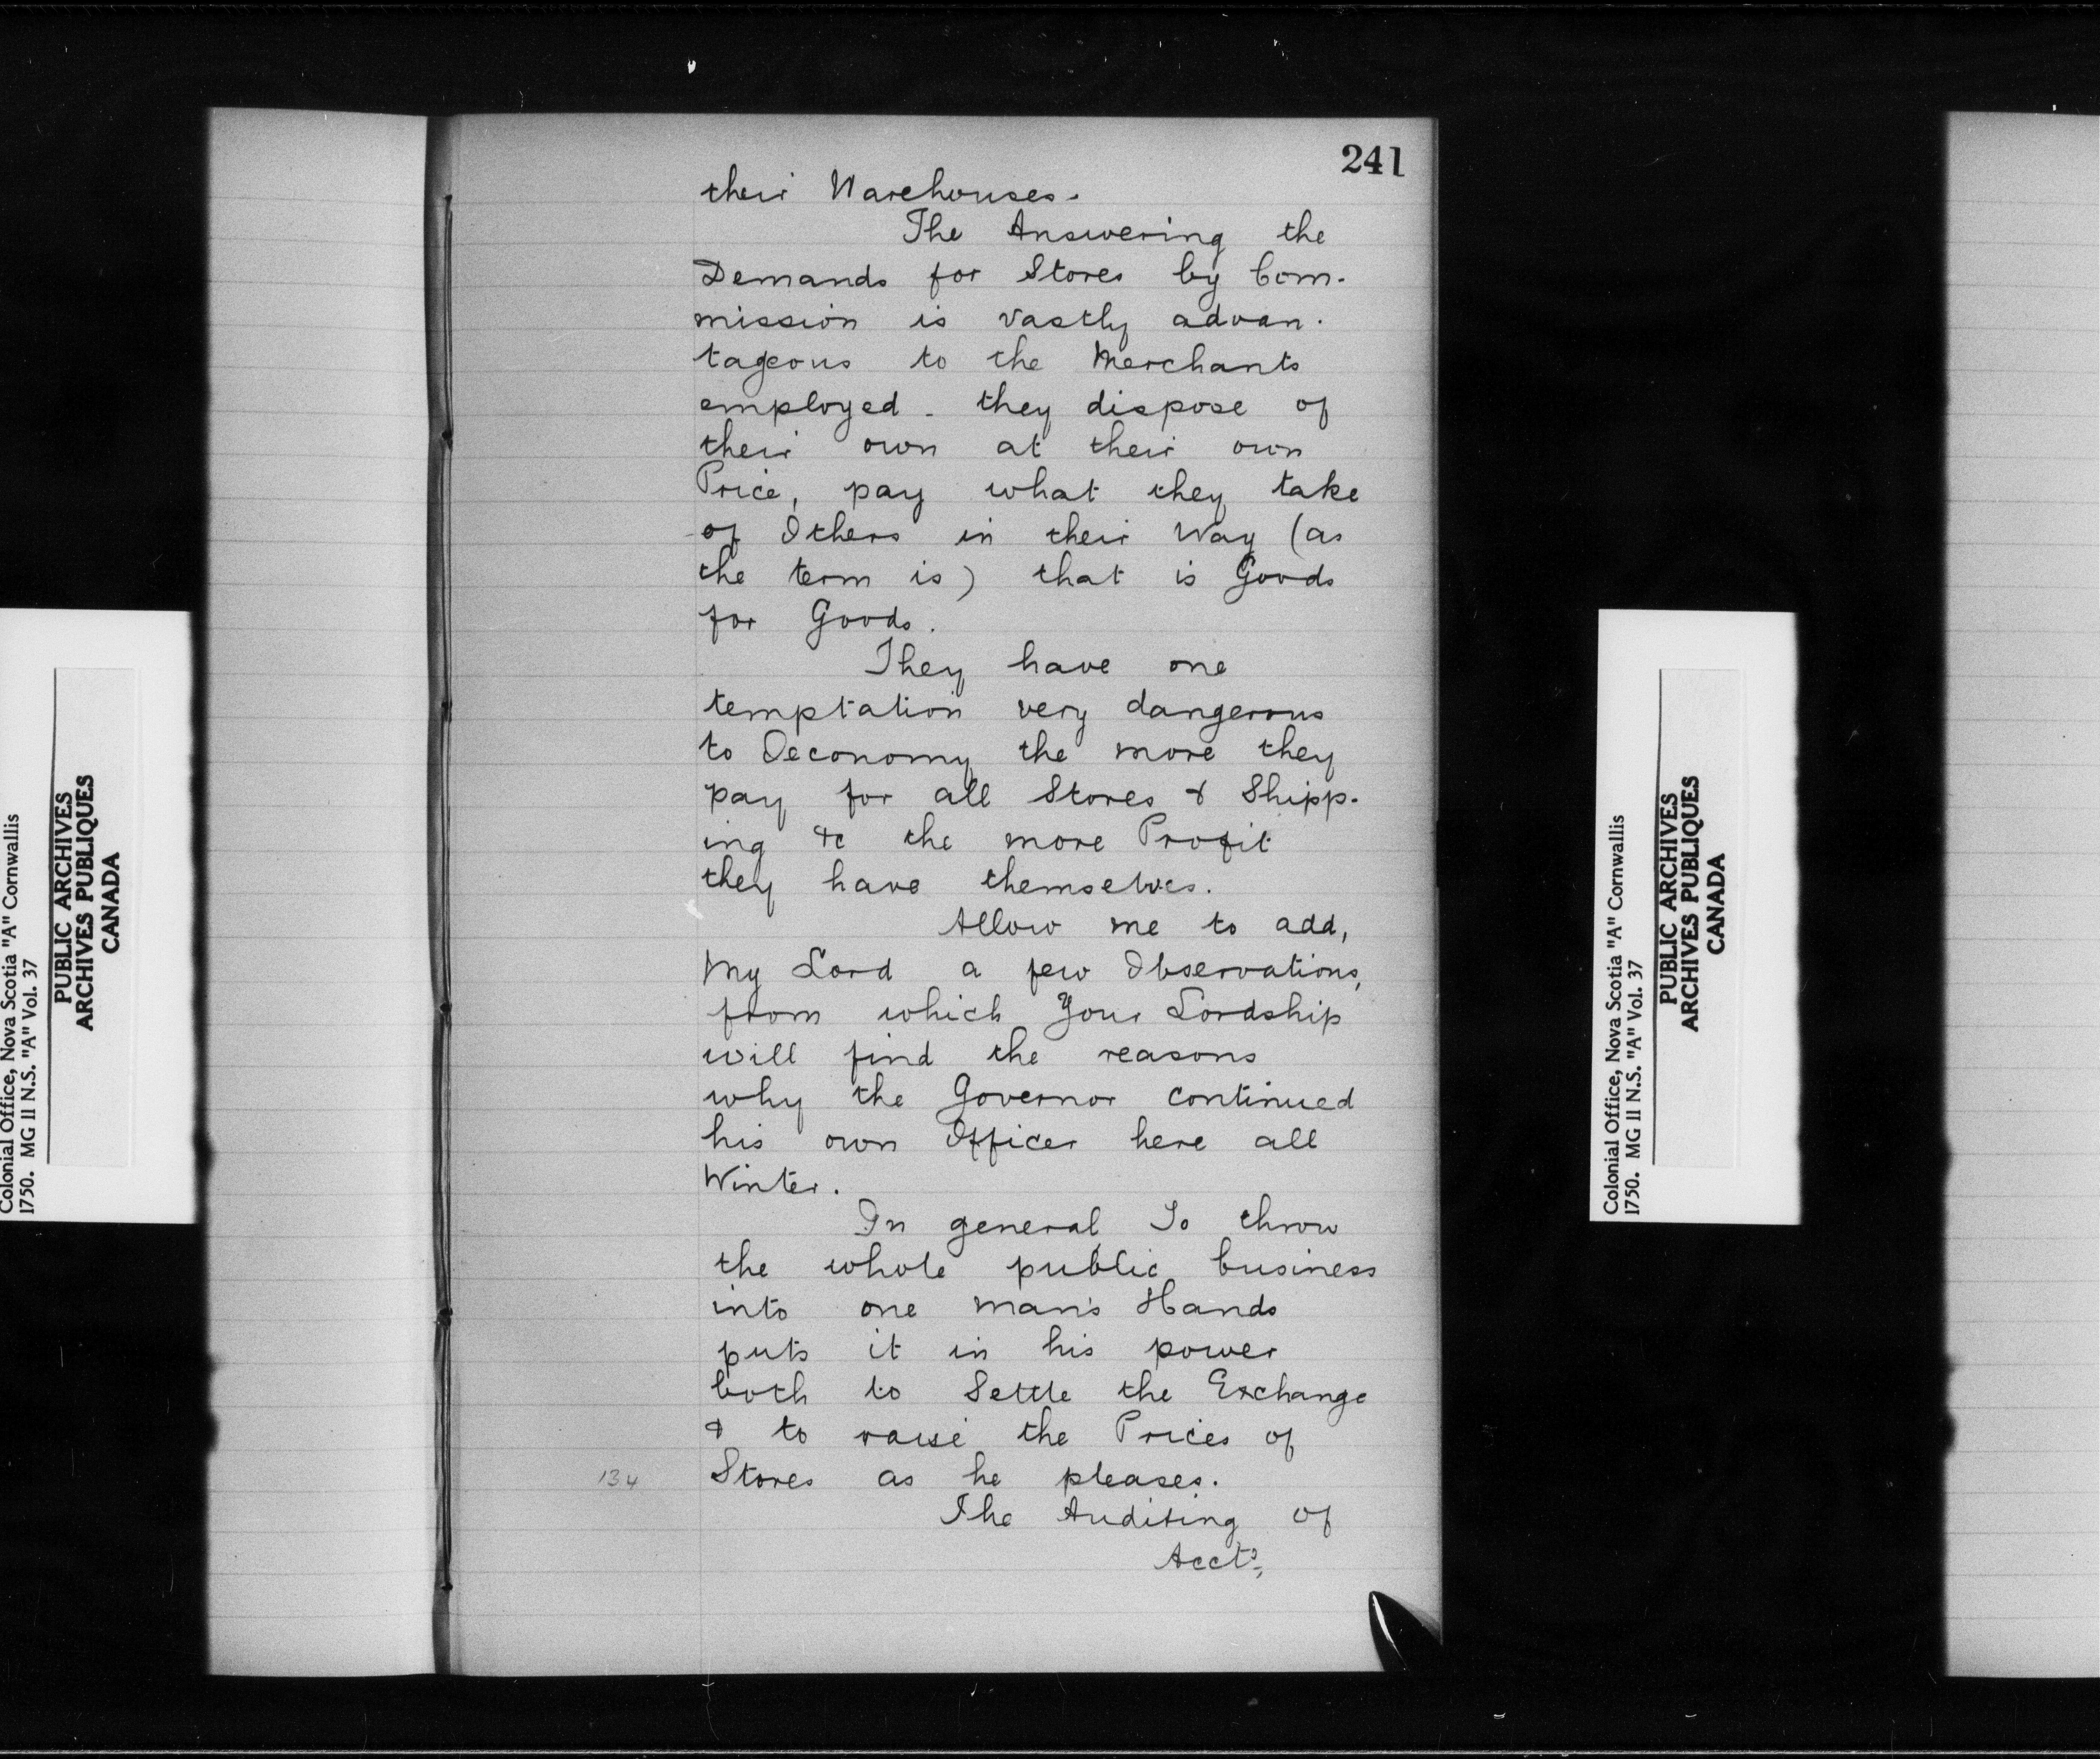 241
their Warehouses.
The Answering the
Demands for Stores by Com-
mission is vastly advan-
tageous to the Merchants
employed - they dispose of
their own at their own
Price, pay what they take
of Others in their Way (as
the term is) that is Goods
for Goods.
They have one
temptation very dangerous
to Oeconomy the more they
pay for all Stores & Shipp-
ing &c the more Profit
they have themselves.
Allow me to add,
My Lord a few Observations,
from which Your Lordship
will find the reasons
why the Governor continued
his own Officer here all
Winter.
In general, To throw
the whole public business
into one man's Hands
puts it in his power
both to Settle the Exchange
& to raise the Prices of
134 Stores as he pleases.
The Auditing of
Accts,
Colonial Office, Nova Scotia "A" Cornwallis
1750. MG II N.S. "A" Vol. 37
PUBLIC ARCHIVES
ARCHIVES PUBLIQUES
CANADA
Colonial Office, Nova Scotia "A" Cornwallis
1750. MG II N.S. "A" Vol. 37
PUBLIC ARCHIVES
ARCHIVES PUBLIQUES
CANADA